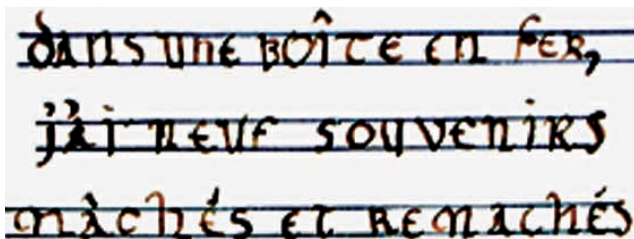 dans une boîte en fer,
j'ai neuf souvenirs
mâchés et remachés